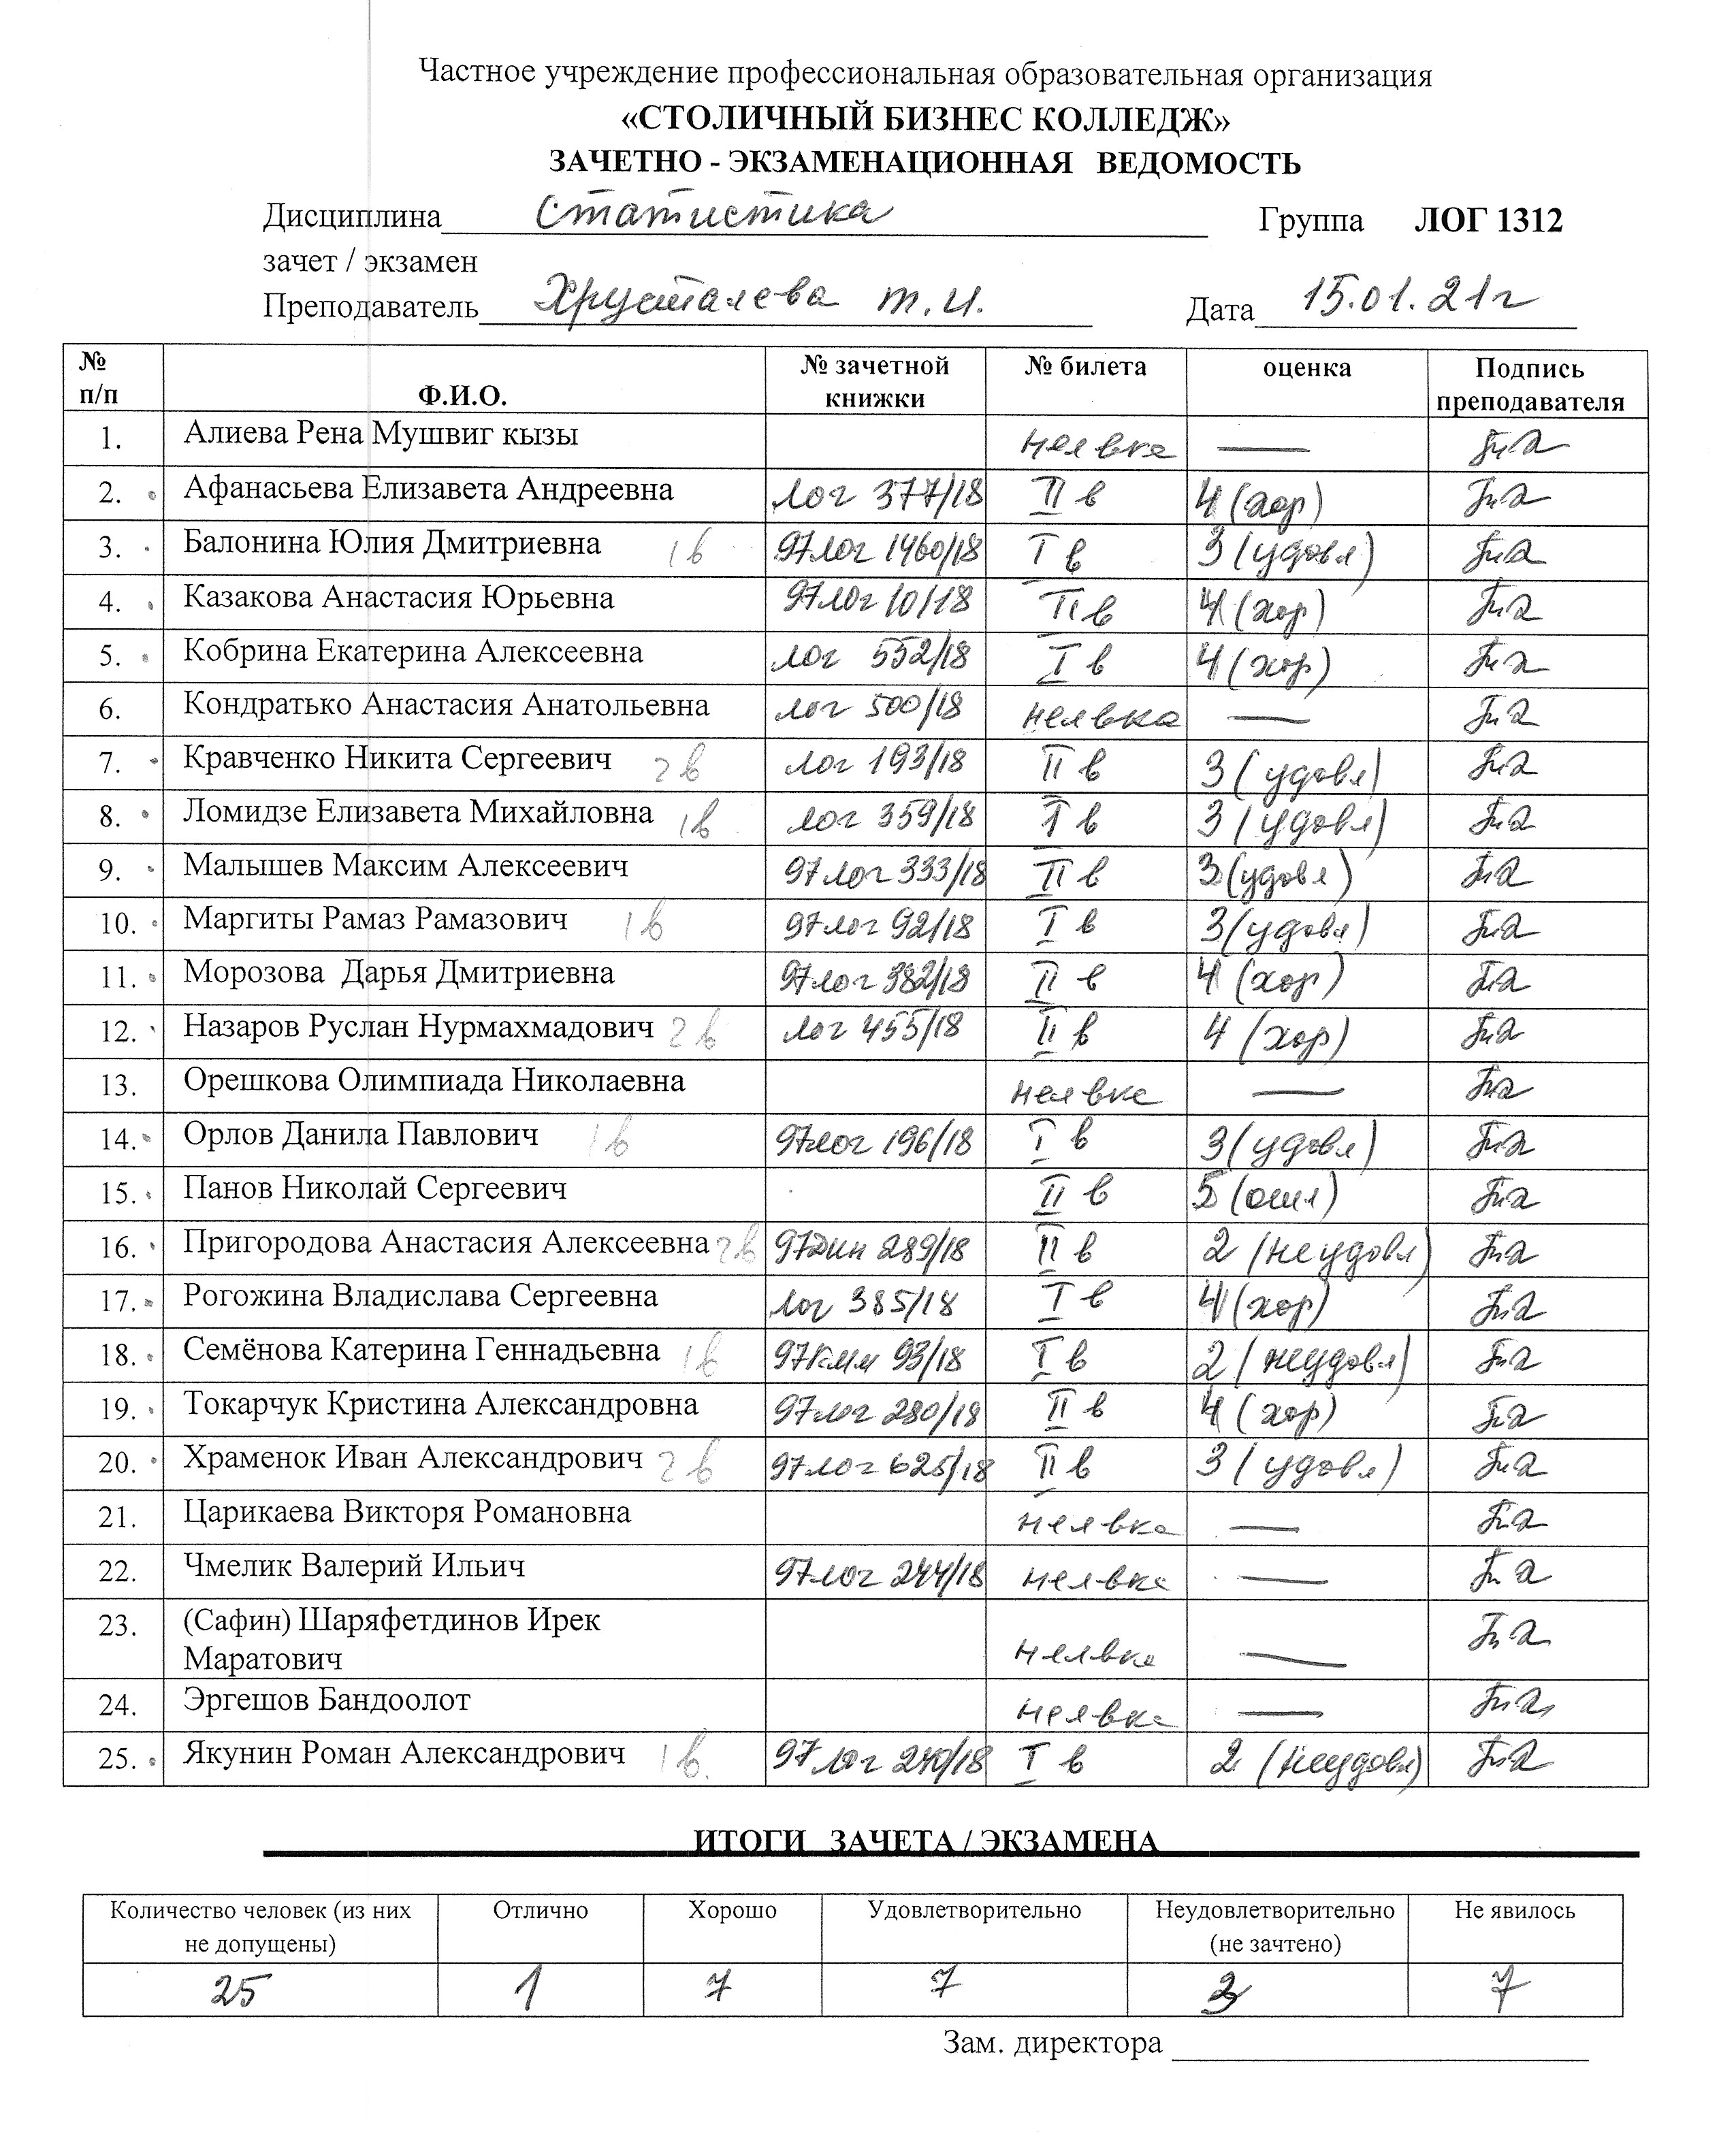 Частное учреждение профессиональная образовательная организация
«СТОЛИЧНЫЙ БИЗНЕС КОЛЛЕДЖ»
ЗАЧЕТНО - ЭКЗАМЕНАЦИОННАЯ ВЕДОМОСТЬ
Дисциплина Статистика Группа ЛОГ 1312
зачет / экзамен
Преподаватель Хрусталева Т.И. Дата 15.01.21г
№ п/п Ф.И.О. № зачетной книжки № билета оценка Подпись преподавателя
1. Алиева Рена Мушвиг кызы неявка —
2. Афанасьева Елизавета Андреевна Лог 377/18 II в 4 (хор)
3. Балонина Юлия Дмитриевна 1 в 97лог 1460/18 I в 3 (удовл)
4. Казакова Анастасия Юрьевна 97лог 10/18 II в 4 (хор)
5. Кобрина Екатерина Алексеевна лог 552/18 I в 4 (хор)
6. Кондратько Анастасия Анатольевна лог 500/18 неявка —
7. Кравченко Никита Сергеевич 2 в лог 193/18 II в 3 (удовл)
8. Ломидзе Елизавета Михайловна 1 в лог 359/18 I в 3 (удовл)
9. Малышев Максим Алексеевич 97лог 333/18 II в 3 (удовл)
10. Маргиты Рамаз Рамазович 1 в 97лог 92/18 I в 3 (удовл)
11. Морозова Дарья Дмитриевна 97лог 382/18 II в 4 (хор)
12. Назаров Руслан Нурмахмадович 2 в лог 455/18 II в 4 (хор)
13. Орешкова Олимпиада Николаевна неявка —
14. Орлов Данила Павлович 1 в 97лог 196/18 I в 3 (удовл)
15. Панов Николай Сергеевич II в 5 (отл)
16. Пригородова Анастасия Алексеевна 2 в 289/18 II в 2 (неудовл)
17. Рогожина Владислава Сергеевна Лог 385/18 I в 4 (хор)
18. Семёнова Катерина Геннадьевна 1 в 93/18 I в 2 (неудовл)
19. Токарчук Кристина Александровна 97лог 280/18 II в 4 (хор)
20. Храменок Иван Александрович 2 в 97лог 625/18 II в 3 (удовл)
21. Царикаева Викторя Романовна неявка —
22. Чмелик Валерий Ильич 97лог 244/18 неявка —
23. (Сафин) Шаряфетдинов Ирек
Маратович неявка —
24. Эргешов Бандоолот неявка —
25. Якунин Роман Александрович 1 в. 97 лог 240/18 I в 2 (неудовл)
ИТОГИ ЗАЧЕТА / ЭКЗАМЕНА
Количество человек (из них не допущены) Отлично Хорошо Удовлетворительно Неудовлетворительно (не зачтено) Не явилось
25 1 7 7 3 7
Зам. директора